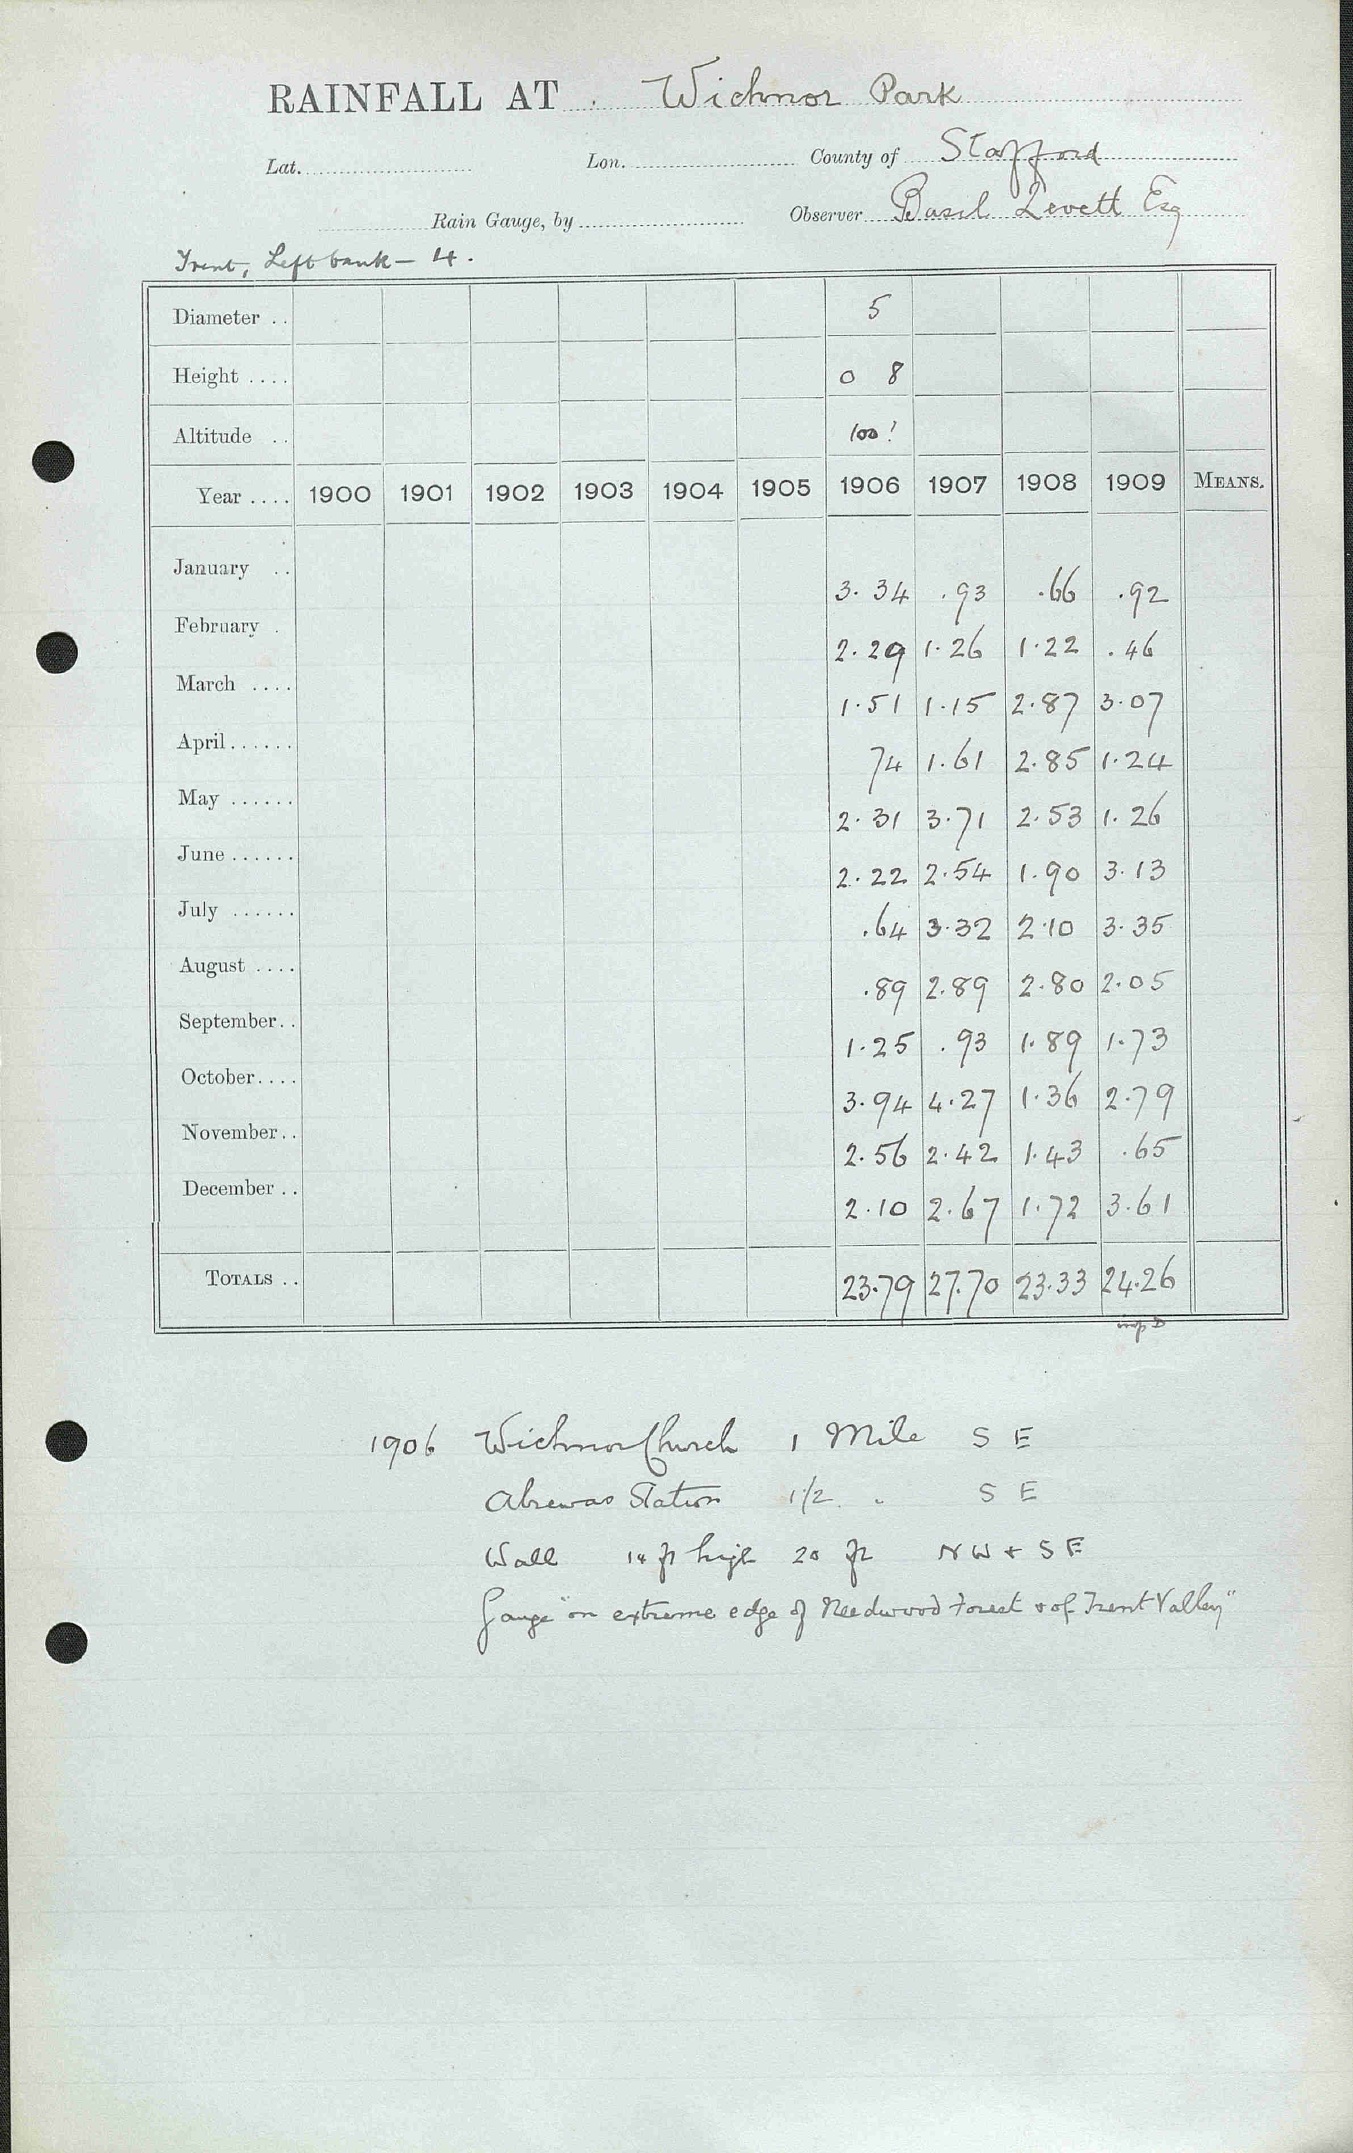 RAINFALL AT Wichnor Park
Lat. Lon. County of Stafford
Rain Gauge, by Observer Basil Levett Esq
Trent, Left bank - 4.
Diameter .. 5
Height .... 0 8
Altitude .. 100!
Year .... 1900 1901 1902 1903 1904 1905 1906 1907 1908 1909 MEANS.
January .. 3.34 .93 .66 .92
February . 2.29 1.26 1.22 .46
March .... 1.51 1.15 2.87 3.07
April...... 74 1.61 2.85 1.24
May ...... 2.31 3.71 2.53 1.26
June ...... 2.22 2.54 1.90 3.13
July ...... .64 3.32 2.10 3.35
August .... .89 2.89 2.80 2.05
September.. 1.25 .93 1.89 1.73
October.... 3.94 4.27 1.36 2.79
November.. 2.56 2.42 1.43 .65
December .. 2.10 2.67 1.72 3.61
TOTALS .. 23.79 27.70 23.33 24.26
1906 Wichnor Church 1 Mile S E
Alrewas Station 1/2 " S E
Wall 14 ft high 20 ft NW + SE
Gauge "on extreme edge of Needwood Forest & of Trent Valley"